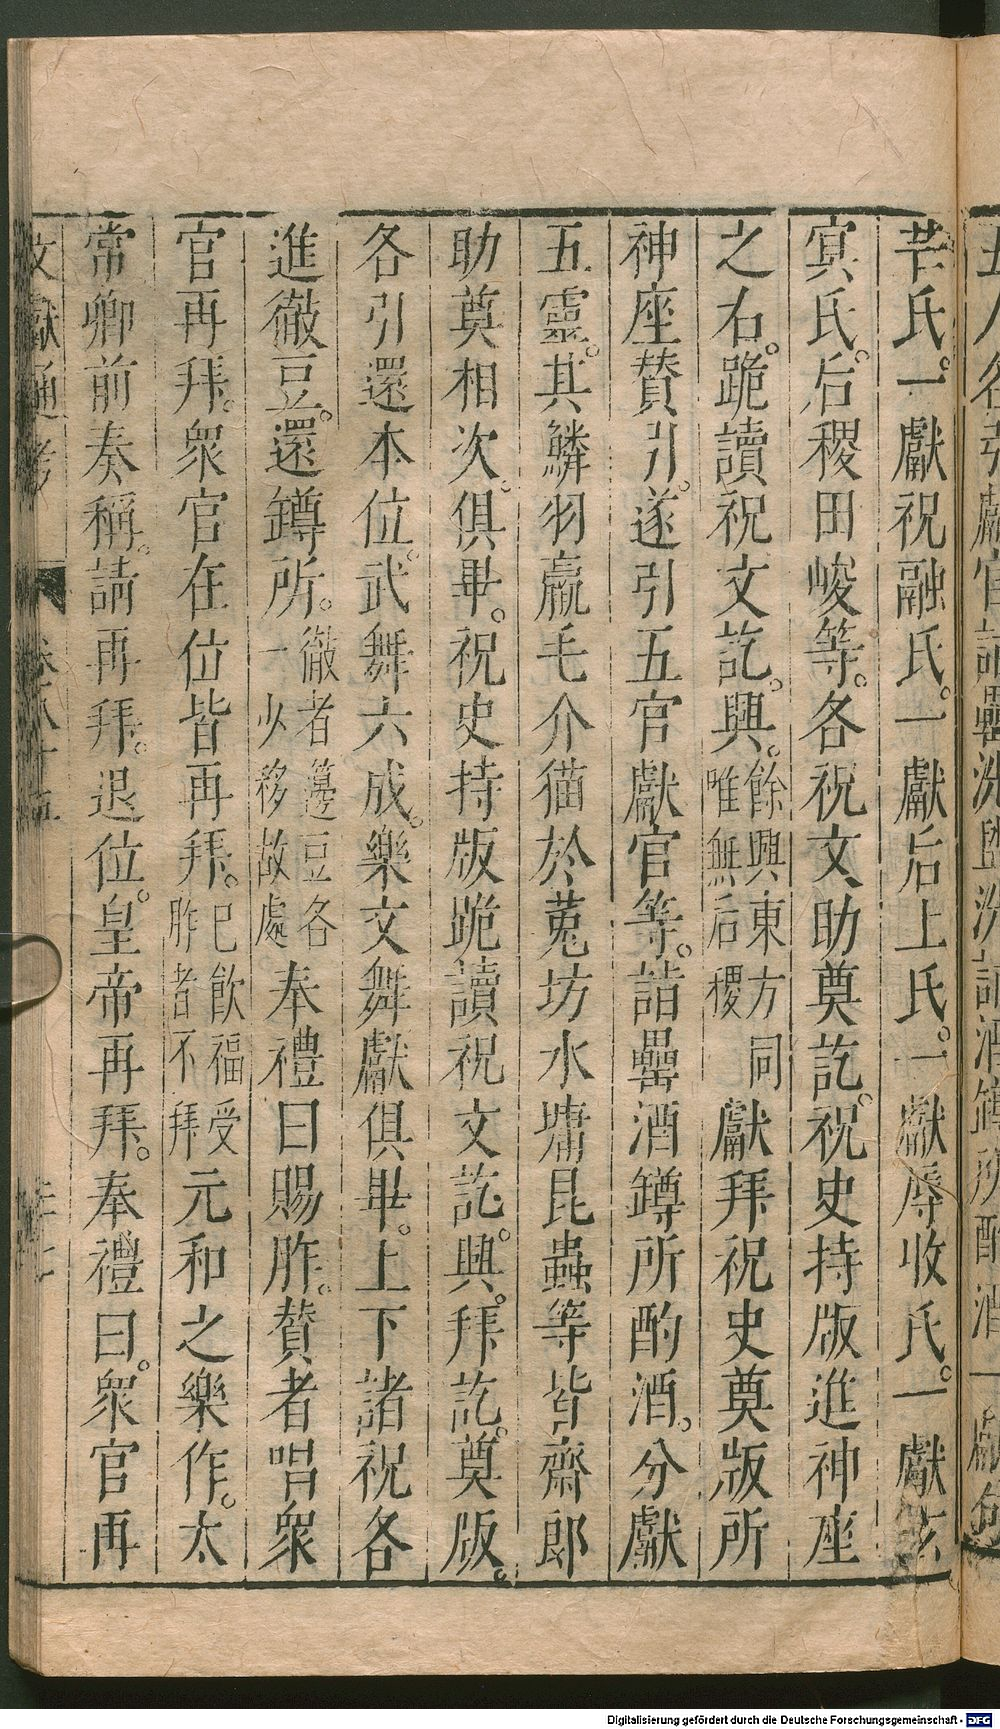 芒氏。一獻祝融氏。一獻后土氏。一獻蓐收氏。一獻玄
冥氏。后稷田峻等。各祝文助奠訖。祝史持版進神座
之右。跪讀祝文訖。興。餘興東方同唯無后稷獻拜祝史奠版所
神座贊引。遂引五官獻官等。詣罍酒罇所酌酒。分獻
五靈。其鱗羽臝毛介猫於菟坊水墉昆蟲等皆齋郎
助奠相次。俱畢。祝史持版跪讀祝文訖。興。拜訖。奠版。
各引還本位。武舞六成。樂文舞獻俱畢。上下諸祝各
進徹豆。還罇所。徹者籩豆各一少移故處。奉禮曰賜胙。贊者唱衆
官再拜。衆官在位皆再拜。已飲福受胙者不拜元和之樂作。太
常卿前奏稱。請再拜。退位。皇帝再拜。奉禮曰。衆官再
文獻通考
Digitalisierung gefördert durch die Deutsche Forschungsgemeinschaft - DFG